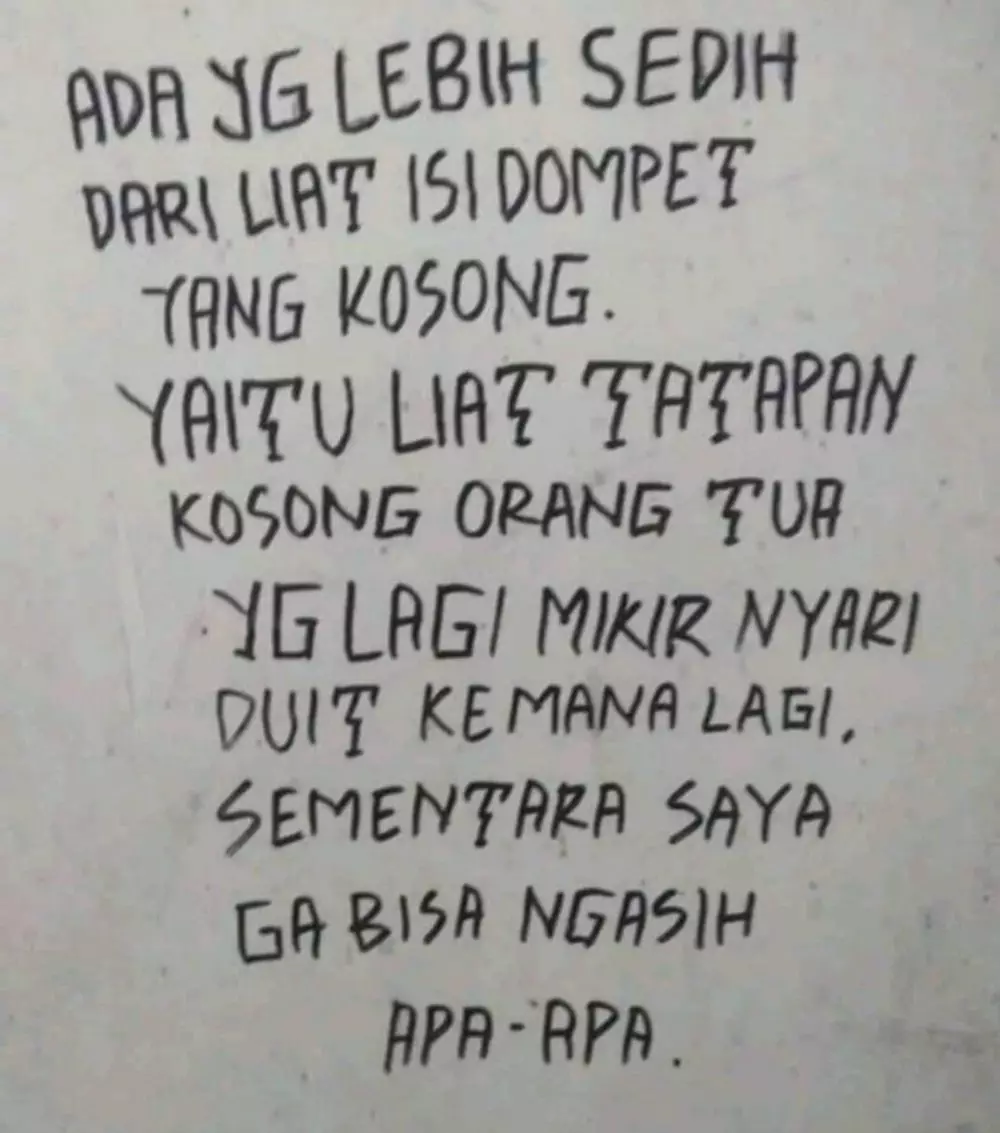 ADA YG LEBIH SEDIH
DARI LIAT ISI DOMPET
YANG KOSONG.
YAITU LIAT TATAPAN
KOSONG ORANG TUA
YG LAGI MIKIR NYARI
DUIT KEMANA LAGI,
SEMENTARA SAYA
GA BISA NGASIH
APA-APA.